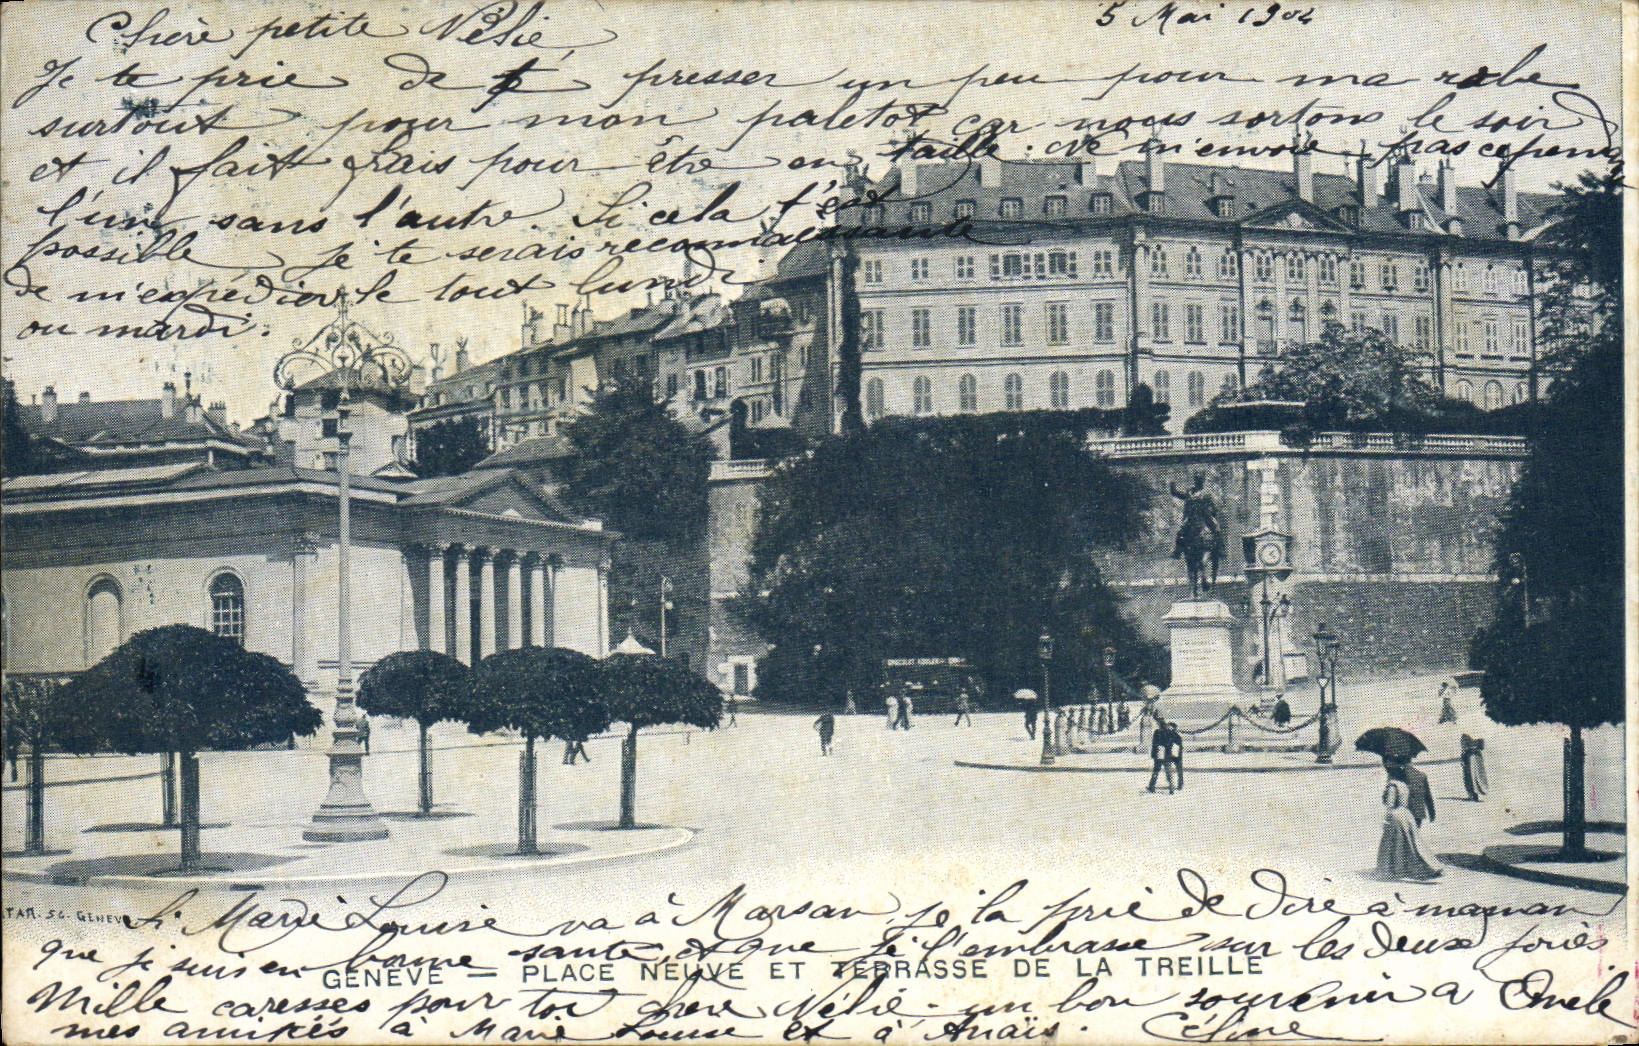 Chère petite Nélie,
5 Mai 1904
Je te prie de te presser un peu pour ma robe
surtout pour mon paletot car nous sortons le soir
et il fait frais pour être en taille. Ne m'envoie pas cependant
l'un sans l'autre. Si cela t'est
possible je te serais reconnaissante
de m'expédier le tout lundi
ou mardi.
CHOCOLAT KOHLER
Si Marie Louise va à Marsan, je la prie de dire à maman
que je suis en bonne santé, et que je l'embrasse sur les deux joues
GENÈVE = PLACE NEUVE ET TERRASSE DE LA TREILLE
Mille caresses pour toi chère Nélie - un bon souvenir à
mes amitiés à Marie Louise et à Anaïs. Céline
SG. GENEVE